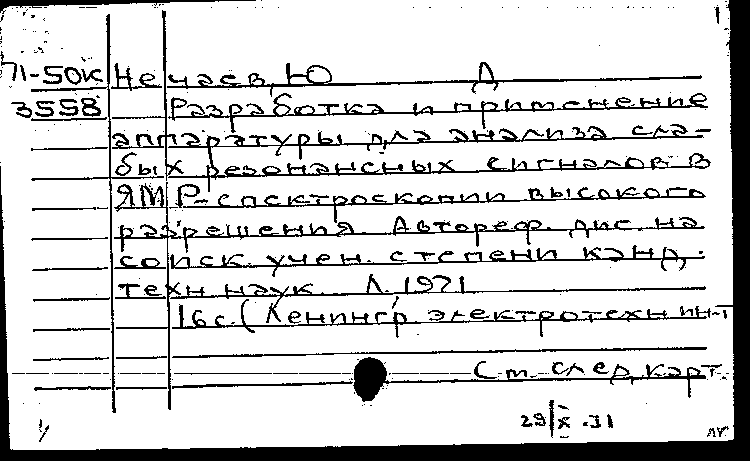 71-50к Нечаев, Ю Д
3558 Разработка и применение
аппаратуры для анализа сла-
бых резонансных сигналов в
ЯМР-спектроскопии высокого
разрешения. Автореф. дис. на
соиск. учен. степени канд.
техн наук. Л, 1971
16с. (Ленингр электротехн ин-т
См. след, карт.
29/X-71